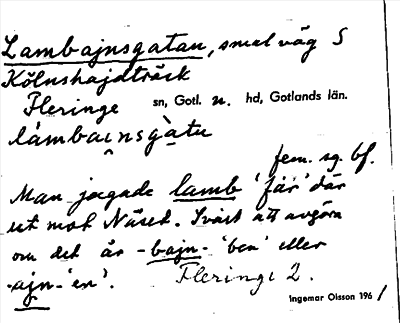 Lambajnsgatan, smal väg S
Kölnshajdträsk
Fleringe sn, Gotl. n. hd, Gotlands län.
lámbai̯nsgàtu
fem. sg. bf.
Man jagade lamb 'får' där
ut mot Näset. Svårt att avgöra
om det är -bajn- 'ben' eller
-ajn- 'en'. Fleringe 2.
Ingemar Olsson 196 1